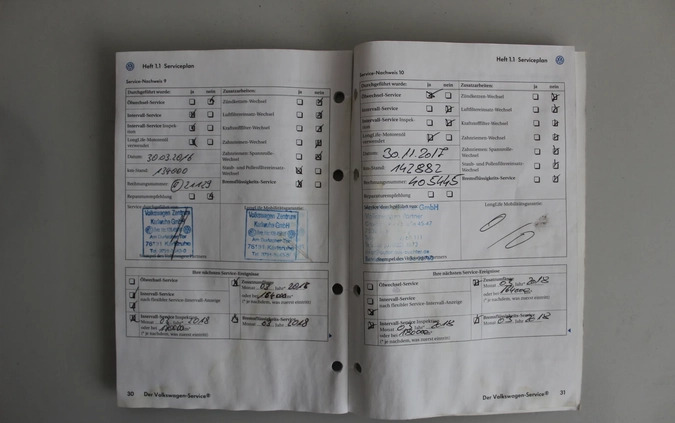 Heft 1.1 Serviceplan
Service-Nachweis 9
Durchgeführt wurde: ja nein
Zusatzarbeiten: ja nein
Ölwechsel-Service
Zündkerzen-Wechsel
Intervall-Service
Luftfiltereinsatz-Wechsel
Intervall-Service Inspek-
tion
Kraftstofffilter-Wechsel
LongLife-Motorenöl
verwendet
Zahnriemen-Wechsel
Datum: 30.03.2016
Zahnriemen-Spannrolle-
Wechsel
km-Stand: 134000
Staub- und Pollenfiltereinsatz-
Wechsel
Rechnungsnummer: 21129
Bremsflüssigkeits-Service
Reparaturen empfohlen
Service durchgeführt von:
LongLife Mobilitätsgarantie:
Volkswagen Zentrum
Karlsruhe GmbH
Am Durlacher Tor
76131 Karlsruhe
Volkswagen Zentrum
Karlsruhe GmbH
Am Durlacher Tor
76131 Karlsruhe
Stempel des Volkswagen-Partners
Ihre nächsten Service-Ereignisse
Ölwechsel-Service
Zusatzarbeiten
Monat 03 Jahr* 2018
oder bei 164000 km*
(* je nachdem, was zuerst eintritt)
Intervall-Service
nach flexibler Service-Intervall-Anzeige
Intervall-Service Inspektion
Monat 03 Jahr* 2018
oder bei
(* je nachdem, was zuerst eintritt)
Bremsflüssigkeits-Service
Monat 03 Jahr 2018
30 Der Volkswagen-Service®
Heft 1.1 Serviceplan
Service-Nachweis 10
Durchgeführt wurde: ja nein
Zusatzarbeiten: ja nein
Ölwechsel-Service
Zündkerzen-Wechsel
Intervall-Service
Luftfiltereinsatz-Wechsel
Intervall-Service Inspek-
tion
Kraftstofffilter-Wechsel
LongLife-Motorenöl
verwendet
Zahnriemen-Wechsel
Datum: 30.11.2017
Zahnriemen-Spannrolle-
Wechsel
km-Stand: 142882
Staub- und Pollenfiltereinsatz-
Wechsel
Rechnungsnummer: 405445
Bremsflüssigkeits-Service
Reparaturen empfohlen
Service durchgeführt von: GmbH
LongLife Mobilitätsgarantie:
Volkswagen Partner
Stempel des Volkswagen-Partners
Ihre nächsten Service-Ereignisse
Ölwechsel-Service
Zusatzarbeiten
Monat 03 Jahr* 2018
oder bei 164000 km*
(* je nachdem, was zuerst eintritt)
Intervall-Service
nach flexibler Service-Intervall-Anzeige
Intervall-Service Inspektion
Monat 03 Jahr* 2018
oder bei 180000 km*
(* je nachdem, was zuerst eintritt)
Bremsflüssigkeits-Service
Monat 03 Jahr 2018
Der Volkswagen-Service® 31